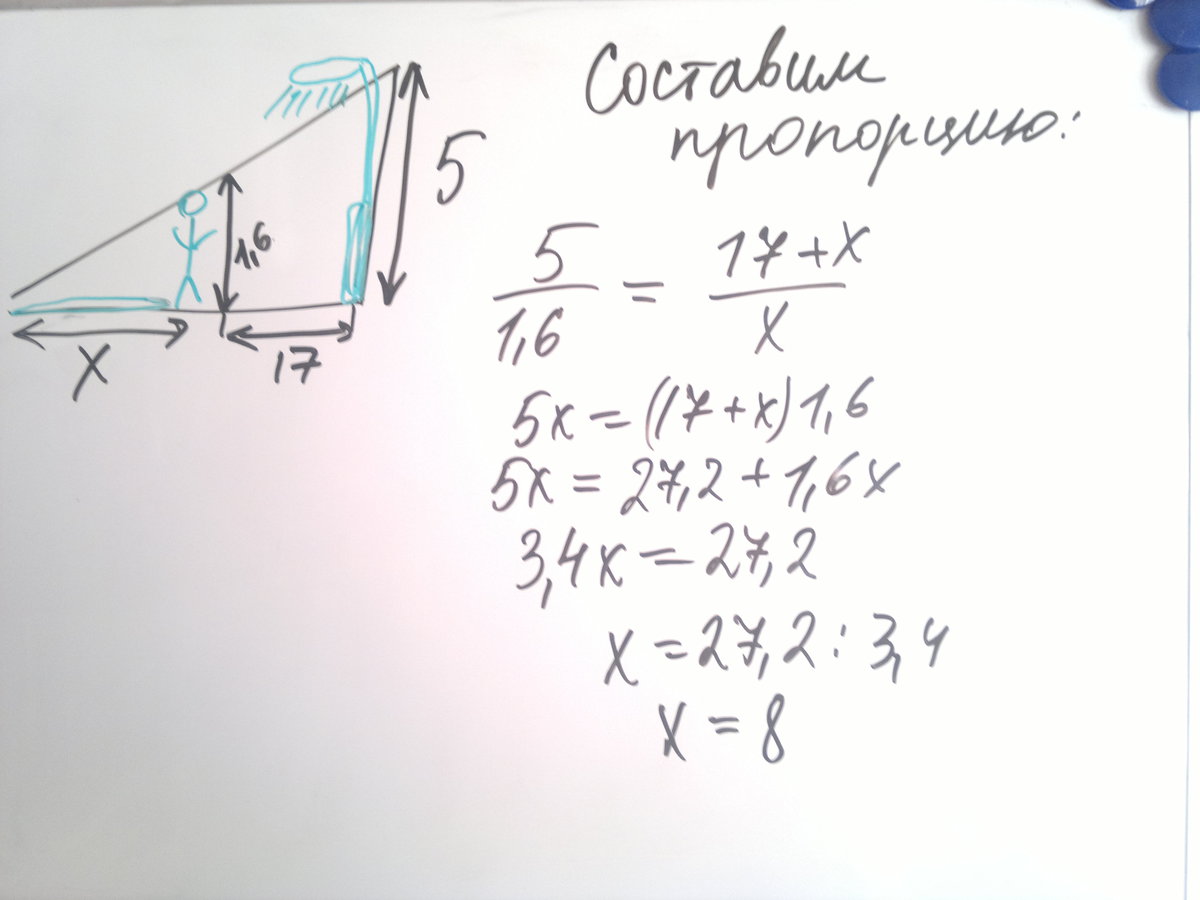 Составим
пропорцию:
5
1,6
x
17
5/1,6 = 17+x/x
5x = (17+x)1,6
5x = 27,2 + 1,6x
3,4x = 27,2
x = 27,2 : 3,4
x = 8